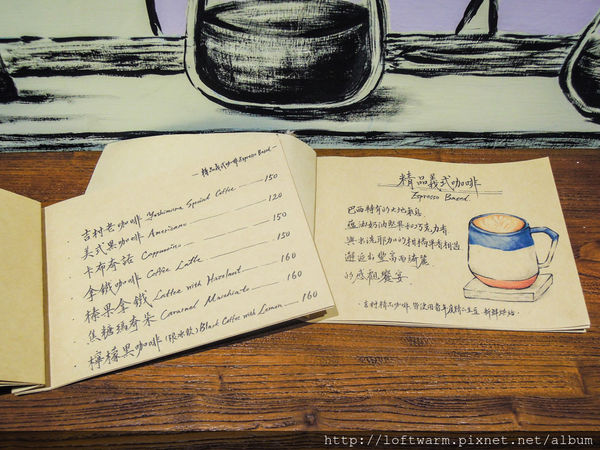 精品義式咖啡 Espresso Based
吉村老咖啡 Yoshimura Special Coffee 150
美式黑咖啡 Americano 120
卡布奇諾 Cappuccino 150
拿鐵咖啡 Coffee Latte 150
榛果拿鐵 Lattee with Hazelnut 160
焦糖瑪奇朵 Caramel Macchiato 160
檸檬黑咖啡(限冰飲) Black Coffee with Lemon 160
精品義式咖啡
Espresso Based
巴西特有的大地氣息
蘊油奶油堅果和巧克力香
與水洗耶加的柑橘果香相遇
邂逅出豐富而綺麗
的感觀饗宴
吉村精品咖啡 皆使用當年度精品生豆 新鮮烘焙
http://loftwarm.pixnet.net/album